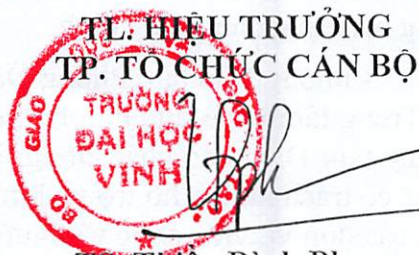 TL. HIỆU TRƯỞNG
TP. TỔ CHỨC CÁN BỘ
BỘ GIÁO DỤC
TRƯỜNG
ĐẠI HỌC
VINH